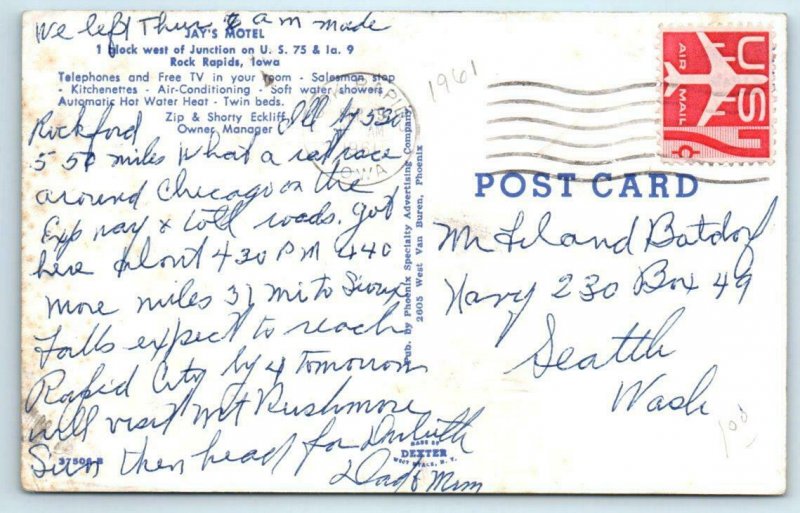 We left Thur 6 a m made
JAY'S MOTEL
1 block west of Junction on U. S. 75 & Ia. 9
Rock Rapids, Iowa
Telephones and Free TV in your room - Salesman stop
- Kitchenettes - Air-Conditioning - Soft water showers
Automatic Hot Water Heat - Twin beds.
Zip & Shorty Eckliff
Owner Manager
Rockford Ill by 530
550 miles What a rat race
around Chicago on the
Exp way & toll roads. got
here about 430 PM 440
more miles 31 mi to Sioux
Falls expect to reach
Rapid City by 4 tomorrow
will visit Mt Rushmore
Sun then head for Duluth
Dad & Mim
37506-B
MADE BY
DEXTER
WEST NYACK, N. Y.
Pub. by Phoenix Specialty Advertising Company
2605 West Van Buren, Phoenix
IOWA
1961
US
AIR MAIL
POST CARD
Mr Leland Batdorf
Navy 230 Box 49
Seattle
Wash
100